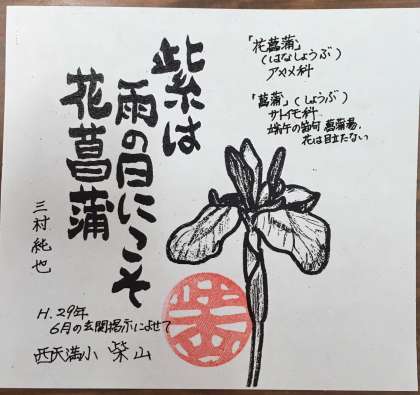 紫は
雨の日にこそ
花菖蒲
三村純也
「花菖蒲」
(はなしょうぶ)
アヤメ科
「菖蒲」(しょうぶ)
サトイモ科
端午の節句 菖蒲湯.
花は目立たない
H.29年
6月の玄関掲示によせて
西天満小 柴山